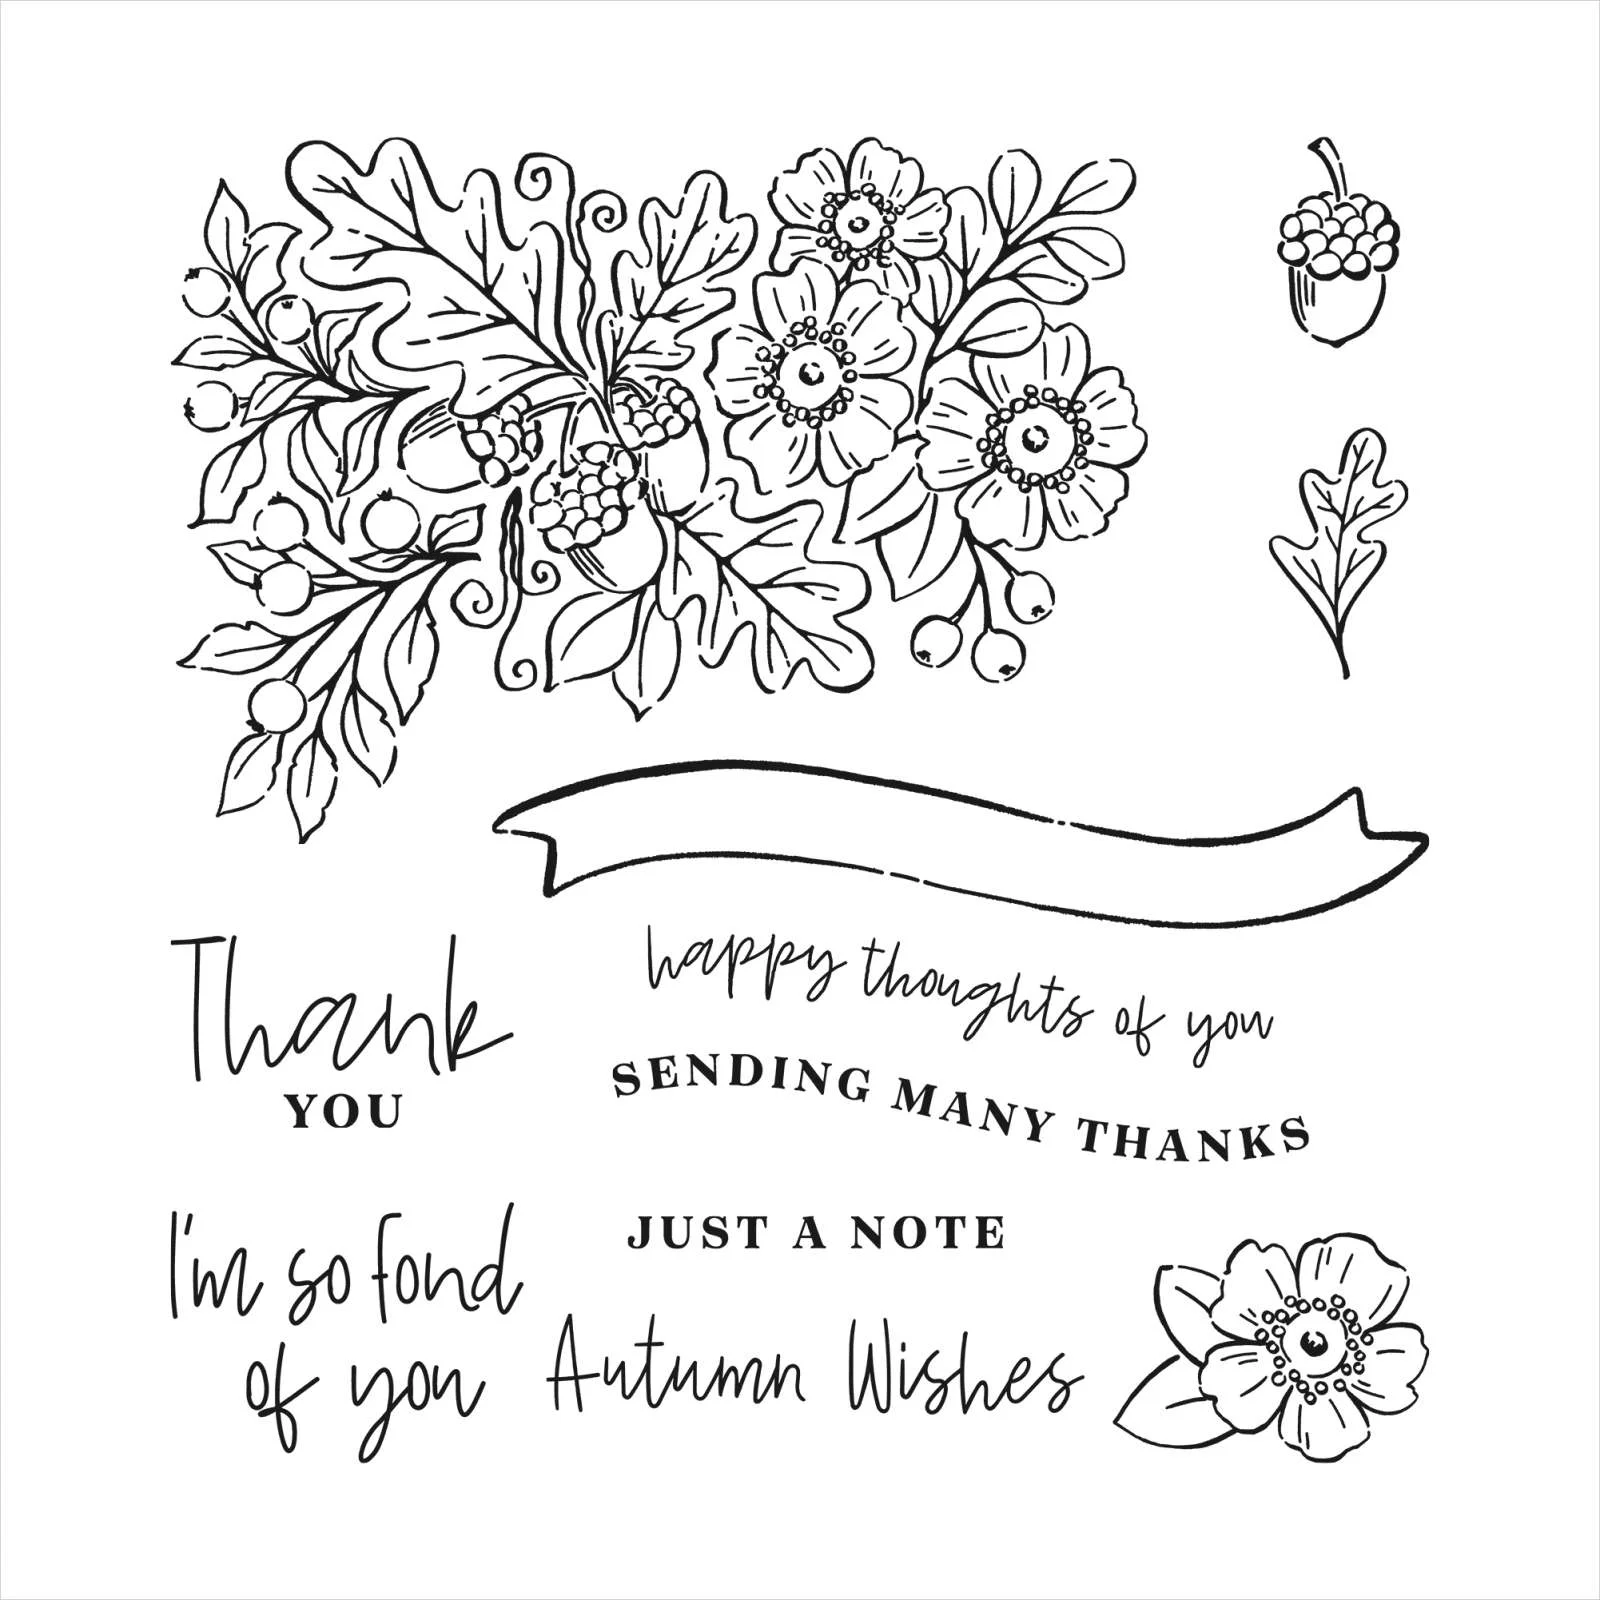 Thank
YOU
happy thoughts of you
SENDING MANY THANKS
I'm so fond
of you
JUST A NOTE
Autumn Wishes